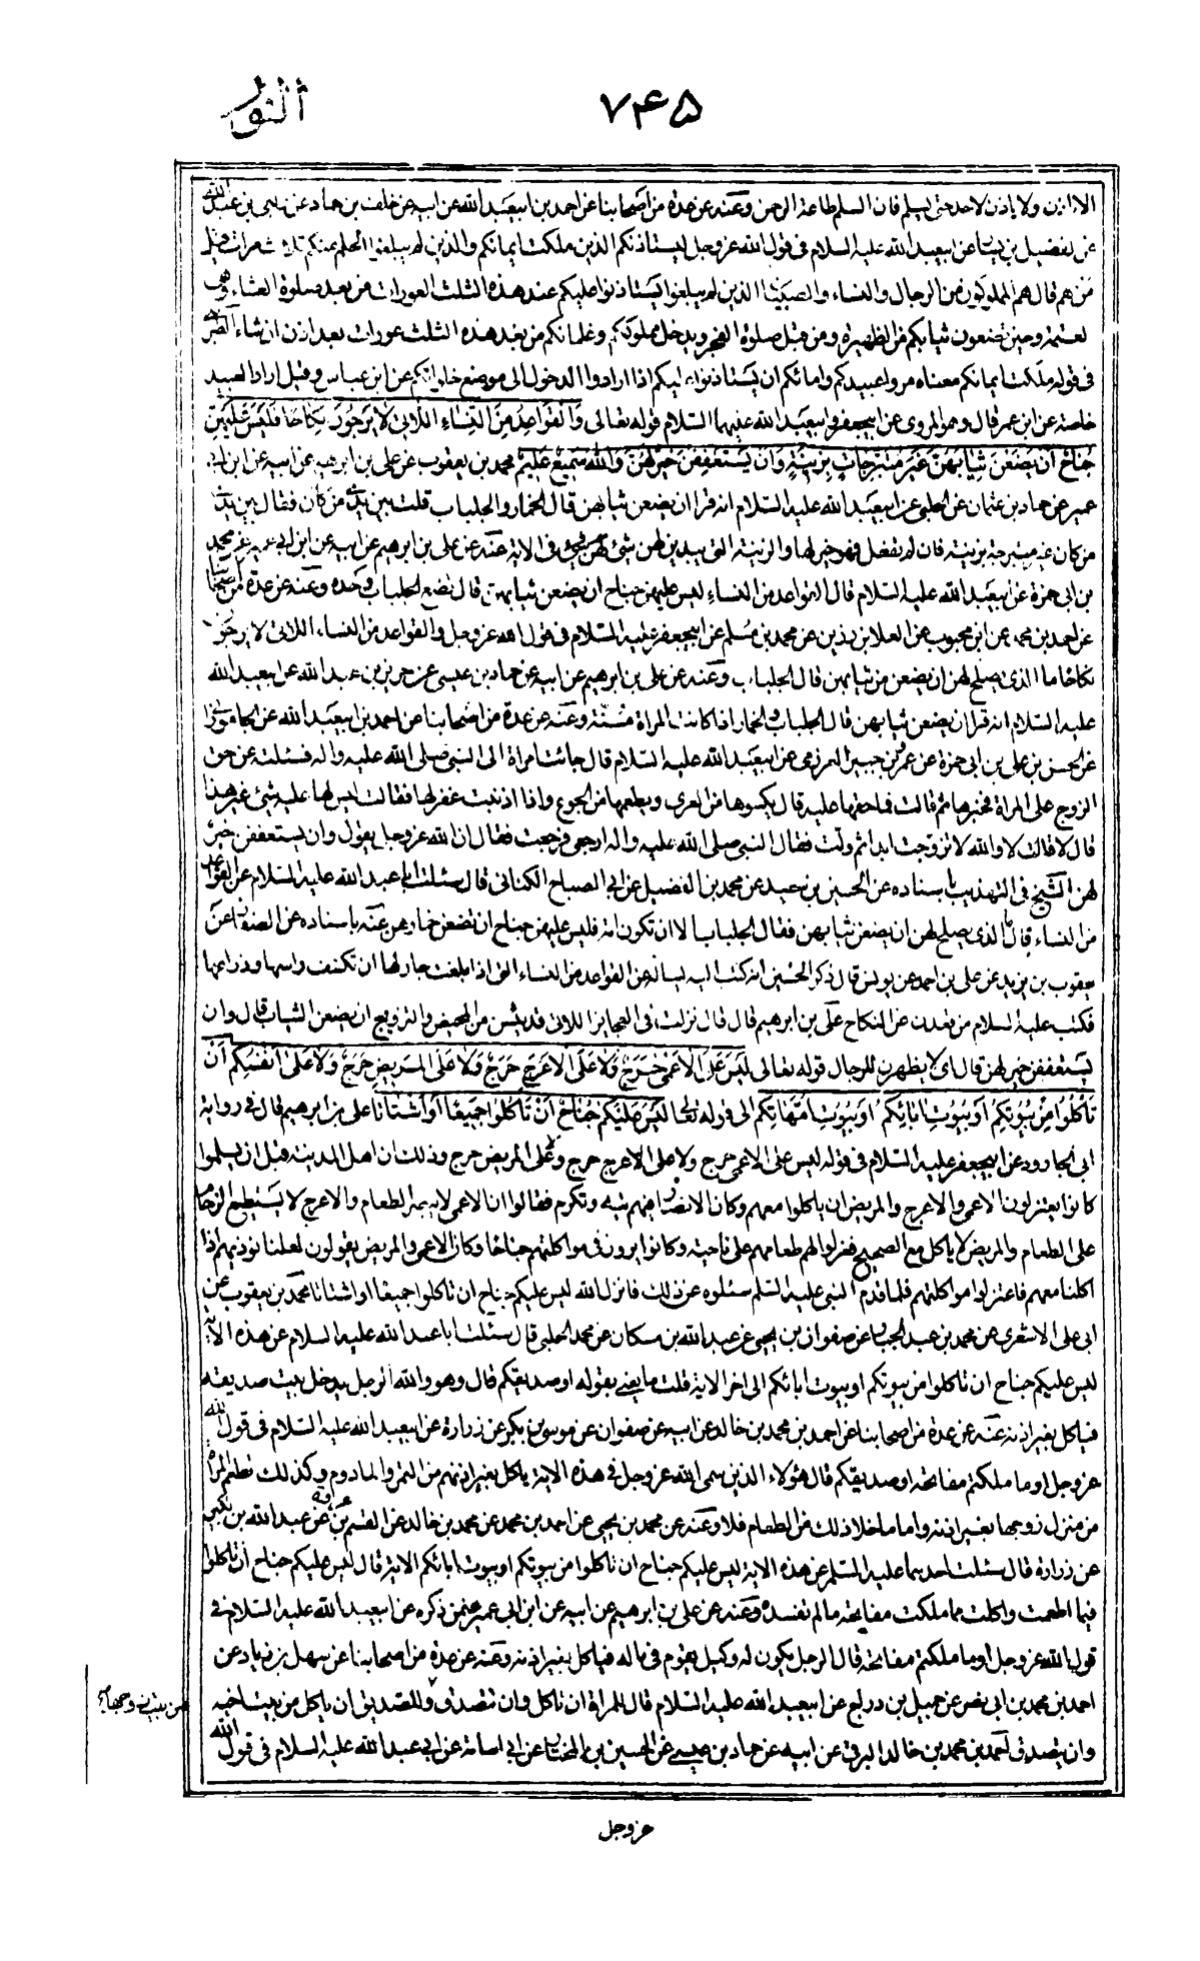 النور
٧٤٥
الا باذن ولا ياذن لاحد حتى يسلم فان السلم طاعة الرحمن وعنه عن عدة من اصحابنا عن احمد بن ابيعبد الله عن ابيه عن خلف بن حماد عن ربعى بن عبد الله
عن الفضيل بن يسار عن ابيعبد الله عليه السلام فى قول الله عز وجل ليستاذنكم الذين ملكت ايمانكم والذين لم يبلغوا الحلم منكم ثلث مرات قيل
من هم قال هم المملوكون من الرجال والنساء والصبيان الذين لم يبلغوا يستاذنوا عليكم عند هذه الثلث العورات من بعد صلوة العشاء وهى
لعتمة وحين تضعون ثيابكم من الظهيرة ومن قبل صلوة الفجر ويدخل مملوككم وغلمانكم من بعد هذه الثلث عورات بعد اذن ان شاءا الطبرسى
فى قوله ملكت ايمانكم معناه مروا عبيدكم وامائكم ان يستاذنوا عليكم اذا ارادوا الدخول الى موضع خلواتكم عن ابن عباس وقيل اراد العبيد
خاصة عن ابن عمر قال وهو المروى عن ابيجعفر وابيعبد الله عليهما السلام قوله تعالى وَالْقَوَاعِدُ مِنَ النِّسَاءِ اللَّاتِى لَا يَرْجُونَ نِكَاحًا فَلَيْسَ عَلَيْهِنَّ
جُنَاحٌ اَنْ يَضَعْنَ ثِيَابَهُنَّ غَيْرَ مُتَبَرِّجَاتٍ بِزِينَةٍ وَاَنْ يَسْتَعْفِفْنَ خَيْرٌ لَهُنَّ وَاللهُ سَمِيعٌ عَلِيمٌ محمد بن يعقوب عن على بن ابرهيم عن ابيه عن ابن ابى
عمير عن حماد بن عثمان عن الحلبى عن ابيعبد الله عليه السلام انه قرا ان يضعن ثيابهن قال الخمار والجلباب قلت بين يدى من كان فقال بين يدى
من كان غير متبرجة بزينة فان لم تفعل فهو خير لها والزينة التى يبدين لهن شئ فى الاية الاخرى عنه عن على بن ابرهيم عن ابيه عن ابن ابى عمير عن محمد
بن ابى حمزة عن ابيعبد الله عليه السلام قال القواعد من النساء ليس عليهن جناح ان يضعن ثيابهن قال تضع الجلباب وحده وعنه عن عدة من اصحابنا
عن احمد بن محمد عن ابن محبوب عن العلا بن رزين عن محمد بن مسلم عن ابيجعفر عليه السلام فى قول الله عز وجل والقواعد من النساء اللاتى لا يرجون
نكاحا ما الذى يصلح لهن ان يضعن من ثيابهن قال الجلباب وعنه عن على بن ابرهيم عن ابيه عن حماد بن عيسى عن حريز بن عبد الله عن ابيعبد الله
عليه السلام انه قرا ان يضعن ثيابهن قال الجلباب والخمار اذا كانت المراة مسنة وعنه عن عدة من اصحابنا عن احمد بن ابيعبد الله عن الجامورانى
عن الحسن بن على بن ابى حمزة عن عمرو بن جبير العرزمى عن ابيعبد الله عليه السلام قال جائت امراة الى النبى صلى الله عليه واله فسئلته عن حق
الزوج على المراة فخبرها ثم قالت فما حقها عليه قال يكسوها من العرى ويطعمها من الجوع واذا اذنبت غفر لها فقالت ليس لها عليه شئ غير هذا
قال لا قالت لا والله لا تزوجت ابدا ثم ولت فقال النبى صلى الله عليه واله ارجعى فرجعت فقال ان الله عز وجل يقول وان يستعففن خير
لهن الشيخ فى التهذيب باسناده عن الحسين بن سعيد عن محمد بن الفضيل عن ابى الصباح الكنانى قال سئلت ابا عبد الله عليه السلام عن القواعد
من النساء قال ما الذى يصلح لهن ان يضعن ثيابهن فقال الجلباب الا ان تكون امة فليس عليهن جناح ان تضعن خمارهن عنه باسناده عن الصفار عن
يعقوب بن يزيد عن على بن احمد عن يونس قال ذكر الحسين انه كتب اليه يساله عن القواعد من النساء التى اذا بلغت جاز لها ان تكشف راسها وذراعها
فكتب عليه السلام من قعدن عن النكاح على بن ابرهيم قال قال نزلت فى العجايز اللاتى قد يئسن من المحيض والتزويج ان يضعن الثياب قال وان
يستعففن خير لهن قال اى لا يظهرن للرجال قوله تعالى لَيْسَ عَلَى الْاَعْمٰى حَرَجٌ وَلَا عَلَى الْاَعْرَجِ حَرَجٌ وَلَا عَلَى الْمَرِيضِ حَرَجٌ وَلَا عَلٰى اَنْفُسِكُمْ اَنْ
تَاْكُلُوا مِنْ بُيُوتِكُمْ اَوْ بُيُوتِ اٰبَائِكُمْ اَوْ بُيُوتِ اُمَّهَاتِكُمْ الى قوله تعالى لَيْسَ عَلَيْكُمْ جُنَاحٌ اَنْ تَاْكُلُوا جَمِيعًا اَوْ اَشْتَاتًا على بن ابرهيم قال فى رواية
ابى الجارود عن ابيجعفر عليه السلام فى قوله ليس على الاعمى حرج ولا على الاعرج حرج ولا على المريض حرج وذلك ان اهل المدينة قبل ان يسلموا
كانوا يعتزلون الاعمى والاعرج والمريض ان ياكلوا معهم وكان الانصار فيهم تيه وتكرم فقالوا ان الاعمى لا يبصر الطعام والاعرج لا يستطيع الزحام
على الطعام والمريض لا ياكل مع الصحيح فعزلوا لهم طعامهم على ناحية وكانوا يرون فى مواكلتهم جناحا وكان الاعمى والمريض يقولون لعلنا نوذيهم اذا
اكلنا معهم فاعتزلوا مواكلتهم فلما قدم النبى عليه السلم سئلوه عن ذلك فانزل الله ليس عليكم جناح ان تاكلوا جميعا او اشتاتا محمد بن يعقوب عن
ابى على الاشعرى عن محمد بن عبد الجبار عن صفوان بن يحيى عن عبد الله بن مسكان عن محمد الحلبى قال سئلت ابا عبد الله عليه السلام عن هذه الاية
ليس عليكم جناح ان تاكلوا من بيوتكم او بيوت ابائكم الى اخر الاية قلت ما يعنى بقوله او صديقكم قال وهو والله الرجل يدخل بيت صديقه
فياكل بغير اذنه عنه عن عدة من اصحابنا عن احمد بن محمد بن خالد عن ابيه عن صفوان عن موسى بن بكر عن زرارة عن ابيعبد الله عليه السلام فى قول الله
عز وجل او ما ملكتم مفاتحه او صديقكم قال هؤلاء الذين سمى الله عز وجل فى هذه الاية ياكل بغير اذنهم من التمر والمادوم وكذلك تطعم المراة
من منزل زوجها بغير اذنه واما ما خلا ذلك من الطعام فلا وعنه عن محمد بن يحيى عن احمد بن محمد عن محمد بن خالد عن القسم بن عروة عن عبد الله بن بكير
عن زرارة قال سئلت احدهما عليه السلم عن هذه الاية ليس عليكم جناح ان تاكلوا من بيوتكم او بيوت ابائكم الاية قال ليس عليكم جناح ان تاكلوا
فيما اطعمت واكلت مما ملكت مفاتحه ما لم تفسده وعنه عن على بن ابرهيم عن ابيه عن ابن ابى عمير عمن ذكره عن ابيعبد الله عليه السلام فى
قول الله عز وجل او ما ملكتم مفاتحه قال الرجل يكون له وكيل يقوم فى ماله فياكل بغير اذنه وعنه عن عدة من اصحابنا عن سهل بن زياد عن
احمد بن محمد بن ابى نصر عن جميل بن دراج عن ابيعبد الله عليه السلام قال للمراة ان تاكل وان تتصدق وللصديق ان ياكل من بيت اخيه
وان يتصدق احمد بن محمد بن خالد البرقى عن ابيه عن حماد بن عيسى عن الحسين بن المختار عن ابى اسامة عن ابى عبد الله عليه السلام فى قول الله
عز وجل